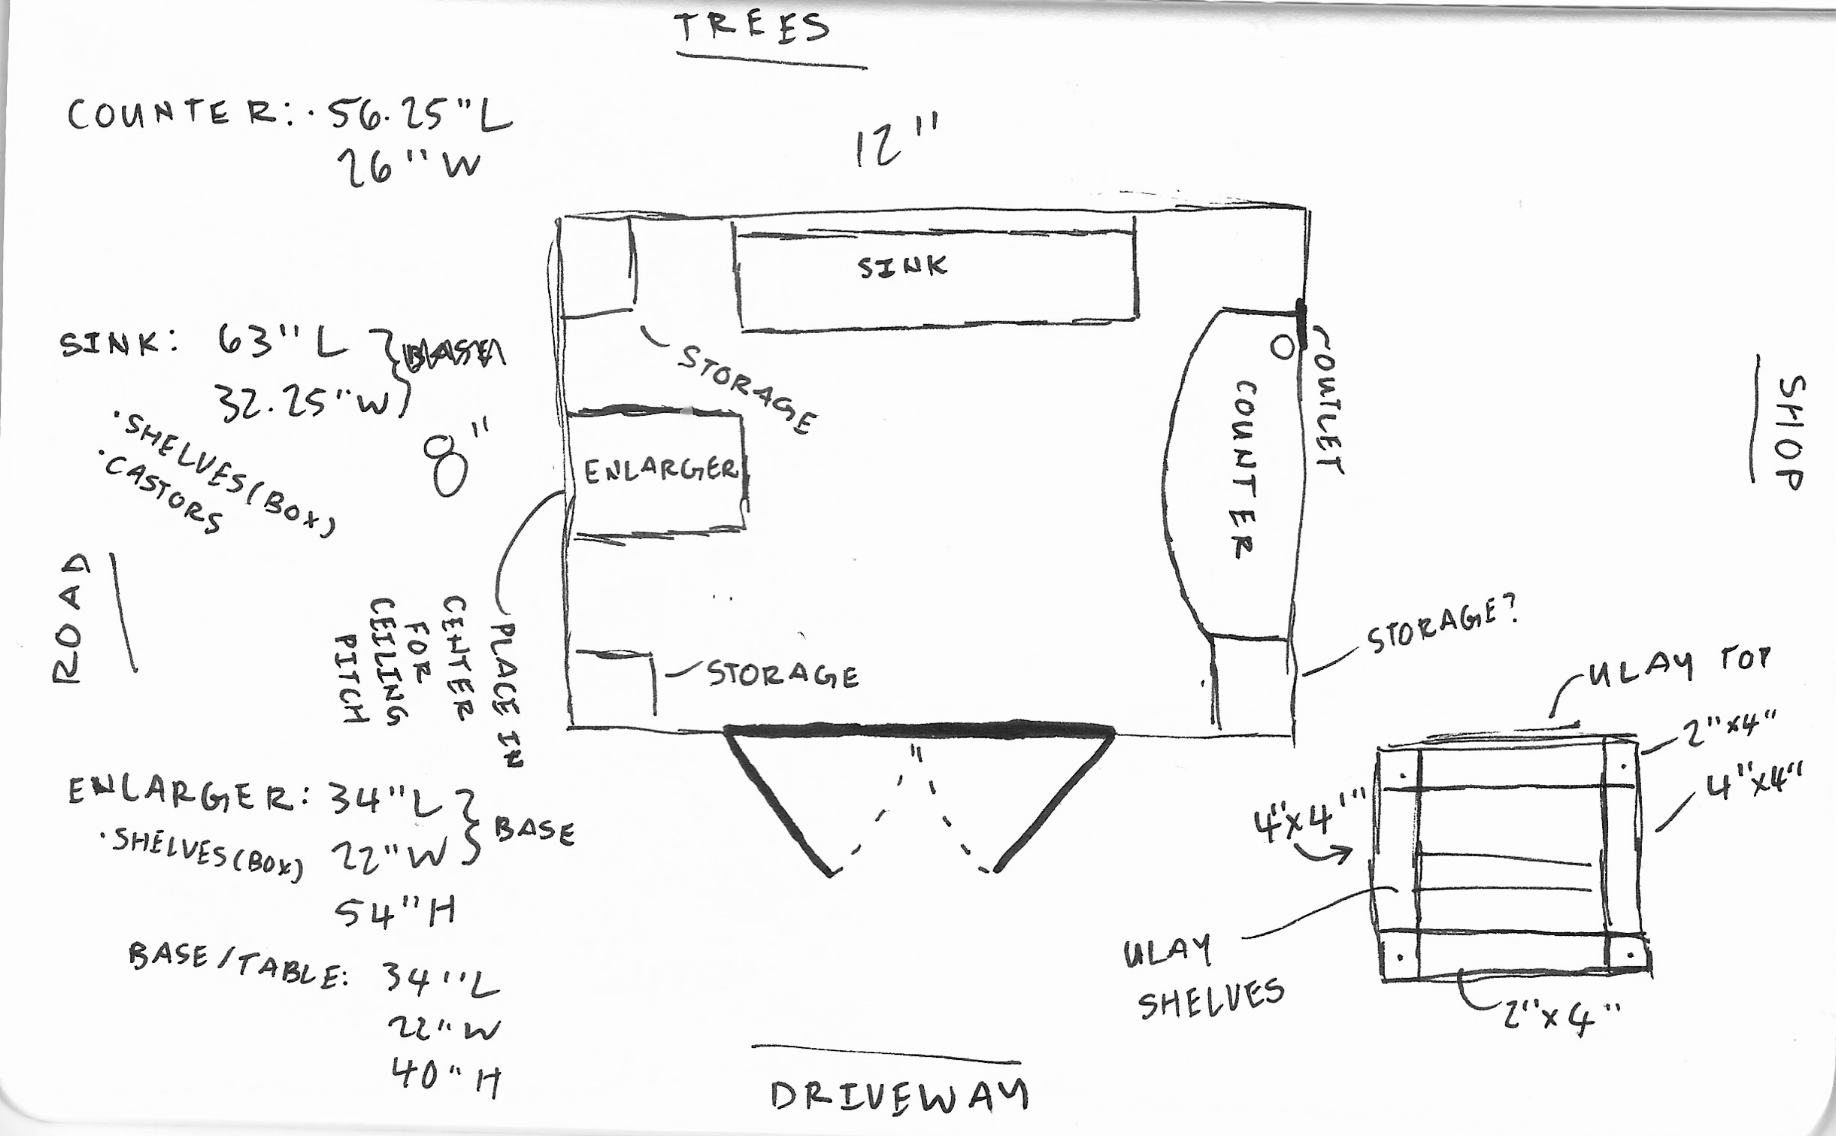 TREES
COUNTER: · 56.25"L
26"W
12"
SINK
SINK: 63"L
32.25"W
· SHELVES (BOX)
· CASTORS
8"
STORAGE
ENLARGER
COUNTER
OUTLET
SHOP
ROAD
PLACE IN
CENTER
FOR
CEILING
PITCH
STORAGE
STORAGE?
ENLARGER: 34"L
22"W
54"H
BASE
· SHELVES (BOX)
BASE/TABLE: 34"L
22"W
40"H
ULAY TOP
2"x4"
4"x4"
4"x4"
ULAY
SHELVES
2"x4"
DRIVEWAY